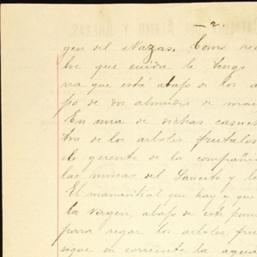 — 2 —
gen del Nazas. Como
que cuida le tengo
na que está abajo de los a
po de dos almudes de mai
En una de dichas casuc
tro de los arboles frutale
gerente de la compañi
las minas del y l
El manantial que hay q que
la virgen, abajo de este pun
para regar los arboles fru
sigue su corriente la agua